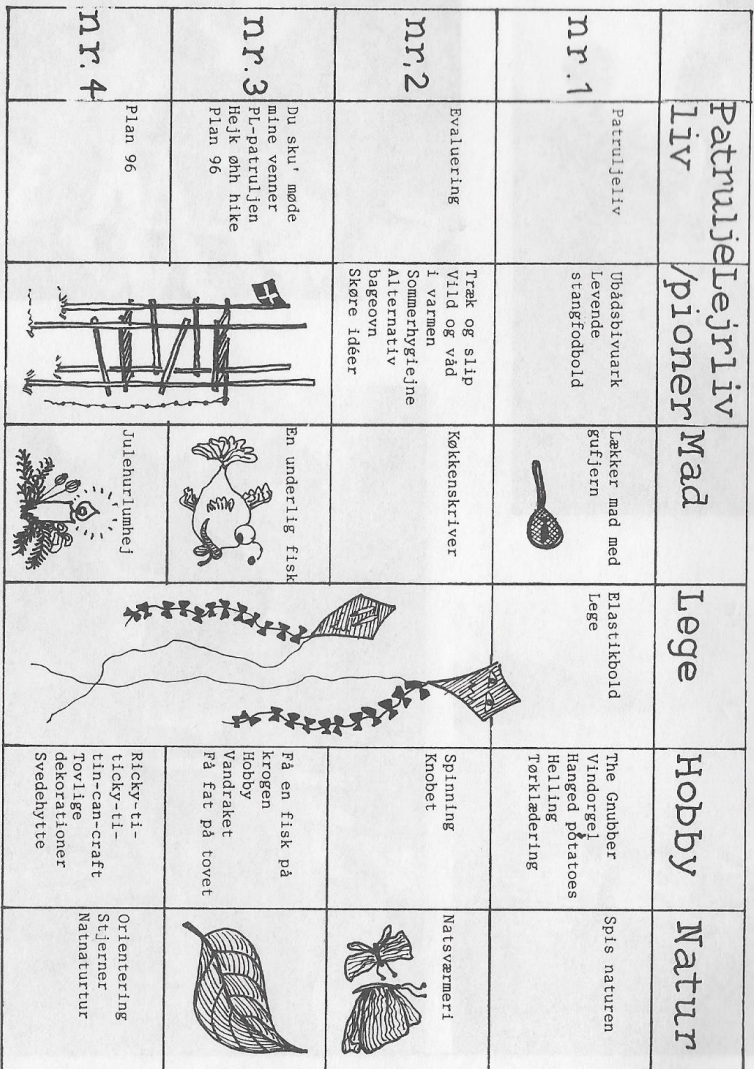 Patrulje
liv
Lejrliv
/pioner
Mad
Lege
Hobby
Natur
nr.1
Patruljeliv
Ubådsbivuark
Levende
stangfodbold
Lækker mad med
gufjern
Elastikbold
Lege
The Gnubber
Vindorgel
Hanged potatoes
Helling
Tørklædering
Spis naturen
nr.2
Evaluering
Træk og slip
Vild og våd
i varmen
Sommerhygiejne
Alternativ
bageovn
Skøre idéer
Køkkenskriver
Spinning
Knobet
Natsværmeri
nr.3
Du sku' møde
mine venner
PL-patruljen
Hejk øhh hike
Plan 96
En underlig fisk
Få en fisk på
krogen
Hobby
Vandraket
Få fat på tovet
nr.4
Plan 96
Julehurlumhej
Ricky-ti-
ticky-ti-
tin-can-craft
Tovlige
dekorationer
Svedehytte
Orientering
Stjerner
Natnaturtur